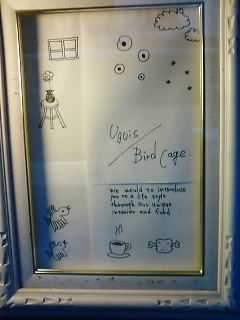 Uguis
Bird Cage.
We would to introduce
you to a life style
through our unique
interior and food